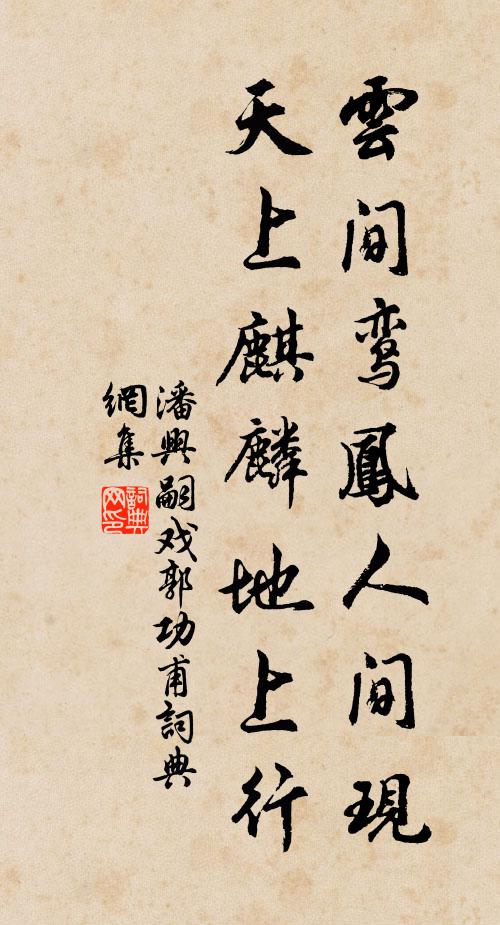 雲間鸾鳳人間現
天上麒麟地上行
潘興嗣戏郭功甫詞典
網集
詞典
网印